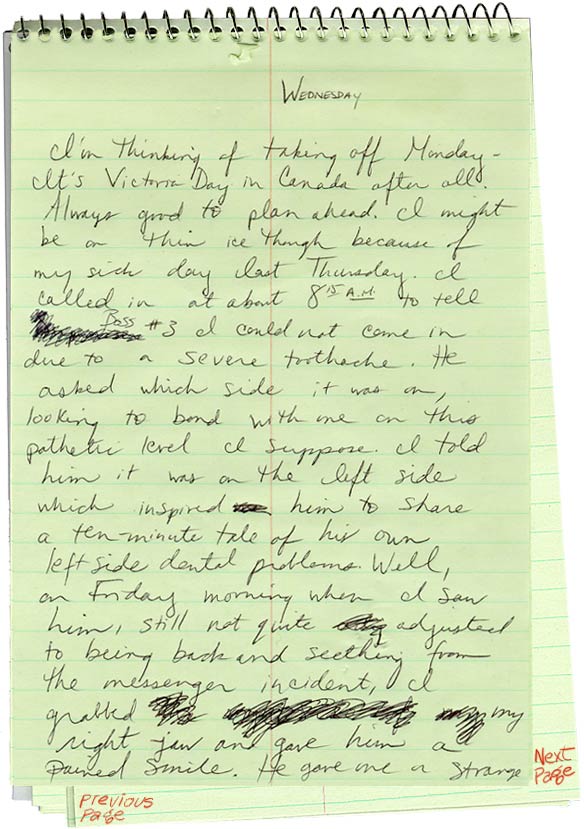 WEDNESDAY
I'm thinking of taking off Monday -
It's Victoria Day in Canada after all.
Always good to plan ahead. I might
be on thin ice though because of
my sick day last Thursday. I
called in at about 8 15 A.M. to tell
Boss #3 I could not come in
due to a severe toothache. He
asked which side it was on,
looking to bond with me on this
pathetic level I suppose. I told
him it was on the left side
which inspired him to share
a ten-minute tale of his own
left side dental problems. Well,
on Friday morning when I saw
him, still not quite adjusted
to being back and seething from
the messenger incident, I
grabbed my
right jaw and gave him a
pained smile. He gave me a strange
Next
Page
Previous
Page